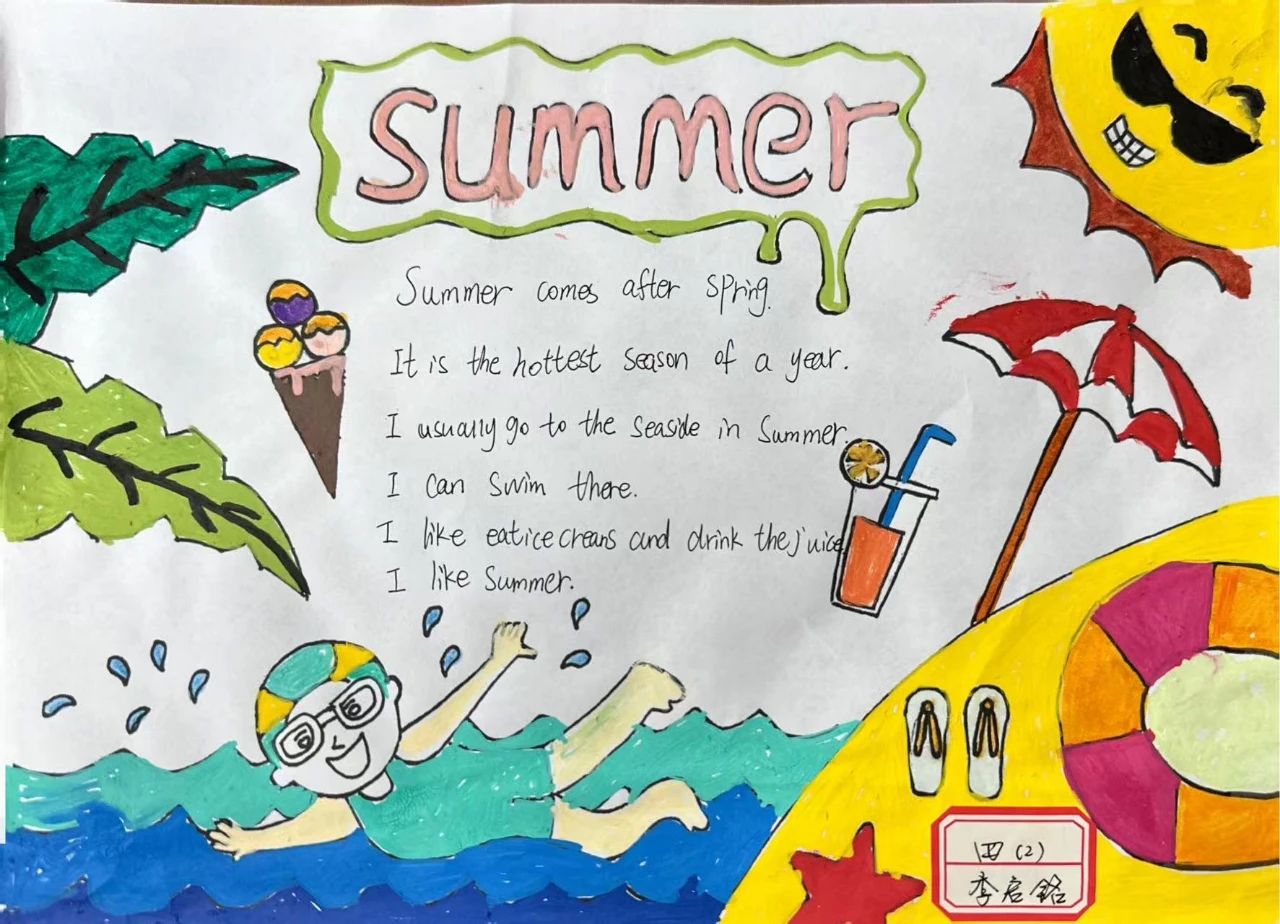 summer
Summer comes after spring.
It is the hottest season of a year.
I usually go to the seaside in summer.
I can swim there.
I like eat ice creans and drink the juice
I like summer.
四(2)
李启铭